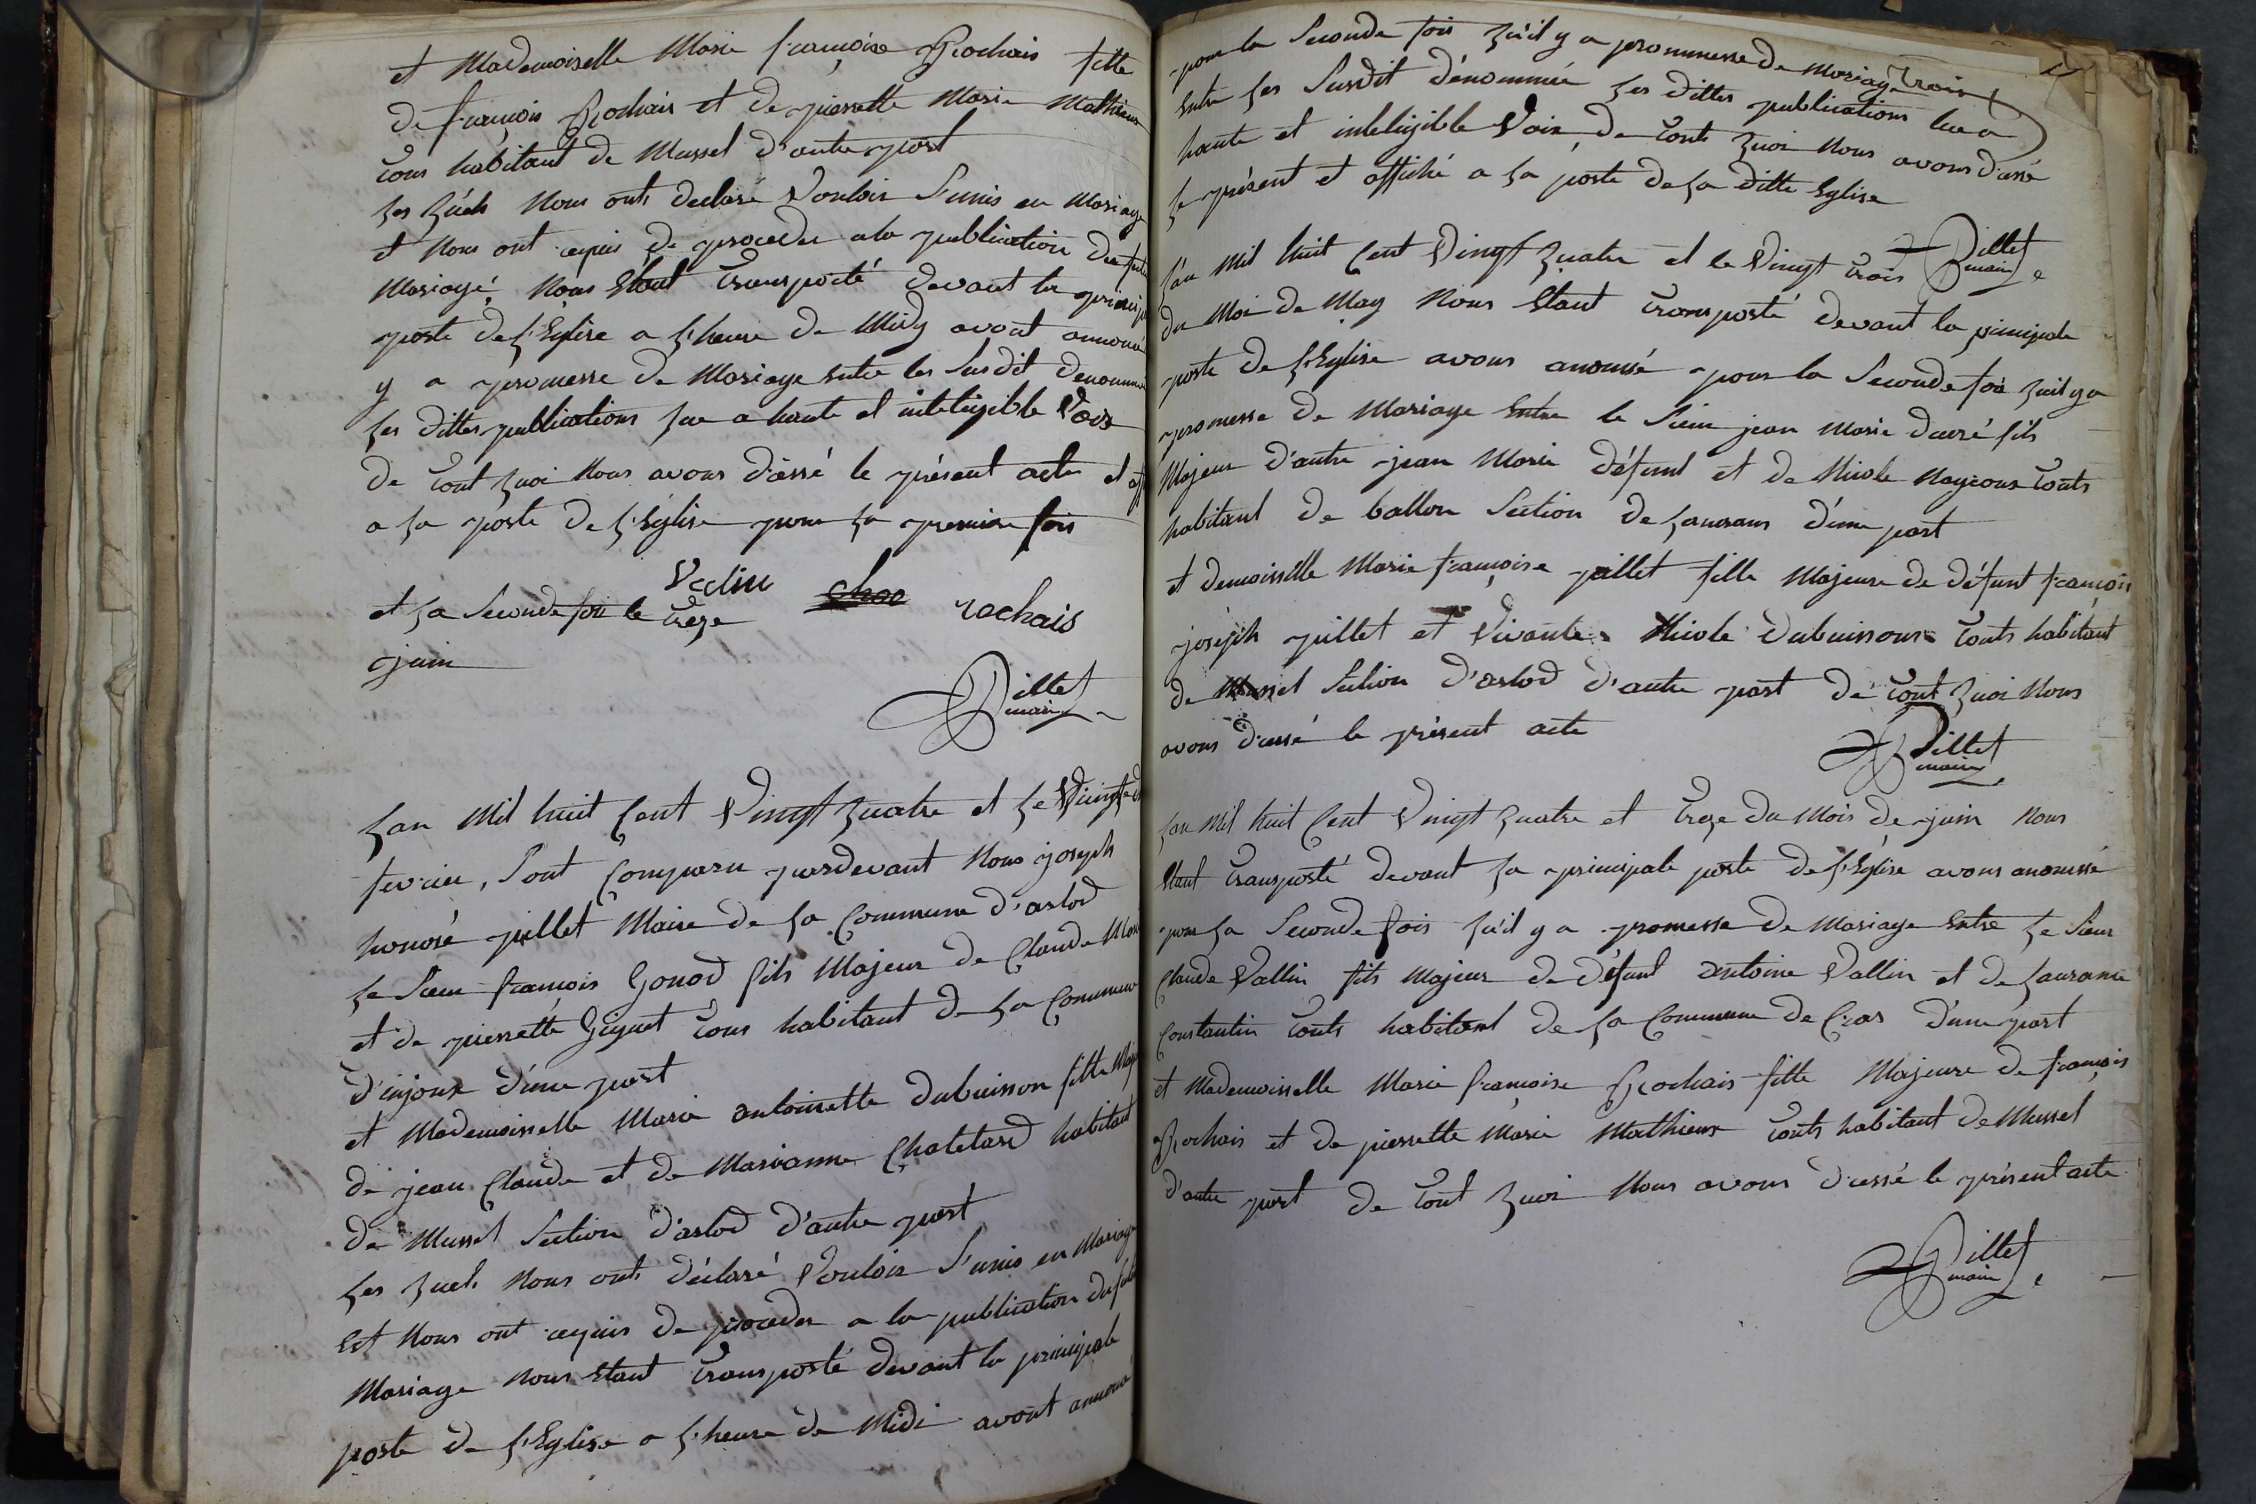 et Mademoiselle Marie françoise Rochais fille
de françois Rochais et de pierrette Marie Mathieux
tous habitant de Mussel d'autre part
les quels Nous onts declaré Vouloir s'unir en Mariage
et Nous ont requis de proceder a la publication du futur
Mariage, Nous Etant transporté devant la principale
porte de l'Eglise a l'heure de Midy avont annoncé
y a promesse de Mariage entre les susdit denommé
les dittes publications lue a haute et inteligible Voix
de tout quoi Nous avons dressé le présent acte et aff
a la porte de l'Eglise pour la premiere fois
Vallin rochais
et la seconde fois le treze
juin
Pillet
maire
Lan Mil huit Cent Vingt quatre et le Vingt
fevrier, sont Comparu pardevant Nous joseph
honoré pillet Maire de la Commune d'arlod
le sieur françois Gonod fils Majeur de Claude Marie
et de pierrette Gignet tous habitant de la Commune
d'injoux d'une part
et Mademoiselle Marie antoinette Dubuisson fille Maj
de jean Claude et de Marianne Chatelard habitant
de Mussel Section d'arlod d'autre part
les quels Nous onts déclaré Vouloir s'unir en Mariage
Et Nous ont requis de proceder a la publication du futur
Mariage Nous Etant transporté devant la principale
porte de l'Eglise a l'heure de Midi avont annoncé
pour la seconde fois qu'il y a prommesse de Mariage trois
entre les susdit dénommée les dittes publications lue a
haute et inteligible Voix, de touts quoi Nous avons dressé
le présent et affiché a la porte de la ditte Eglise
Pillet
maire
l'an Mil huit Cent Vingt quatre et le Vingt trois
du Moi de May Nous Etant transporté devant la principale
porte de l'Eglise avons anonssé pour la seconde foi quil y a
promesse de Mariage Entre le sieur jean Marie ducré fils
Majeur d'autre jean Marie défunt et de Nicole Maycoux touts
habitant de ballon Section de Lancrans d'une part
et demoiselle Marie françoise pillet fille Majeure de défunt françois
joseph pillet et Vivante Nicole Dubuissons touts habitant
de Mussel Section d'arlod d'autre part de tout quoi Nous
avons dressé le présent acte
Pillet
maire
Lan Mil huit Cent Vingt quatre et treze du Mois de juin Nous
Etant transporté devant la principale porte de l'Eglise avons anonssé
pour la seconde fois qu'il y a promesse de Mariage Entre le sieur
Claude Vallin fils Majeur de défunt antoine Vallin et de Lauranne
Constantin touts habitant de la Commune de Cras d'une part
et Mademoiselle Marie françoise Rochais fille Majeure de françois
Rochais et de pierrette Marie Mathieux touts habitant de Mussel
d'autre part de tout quoi Nous avons dressé le présent acte
Pillet
maire